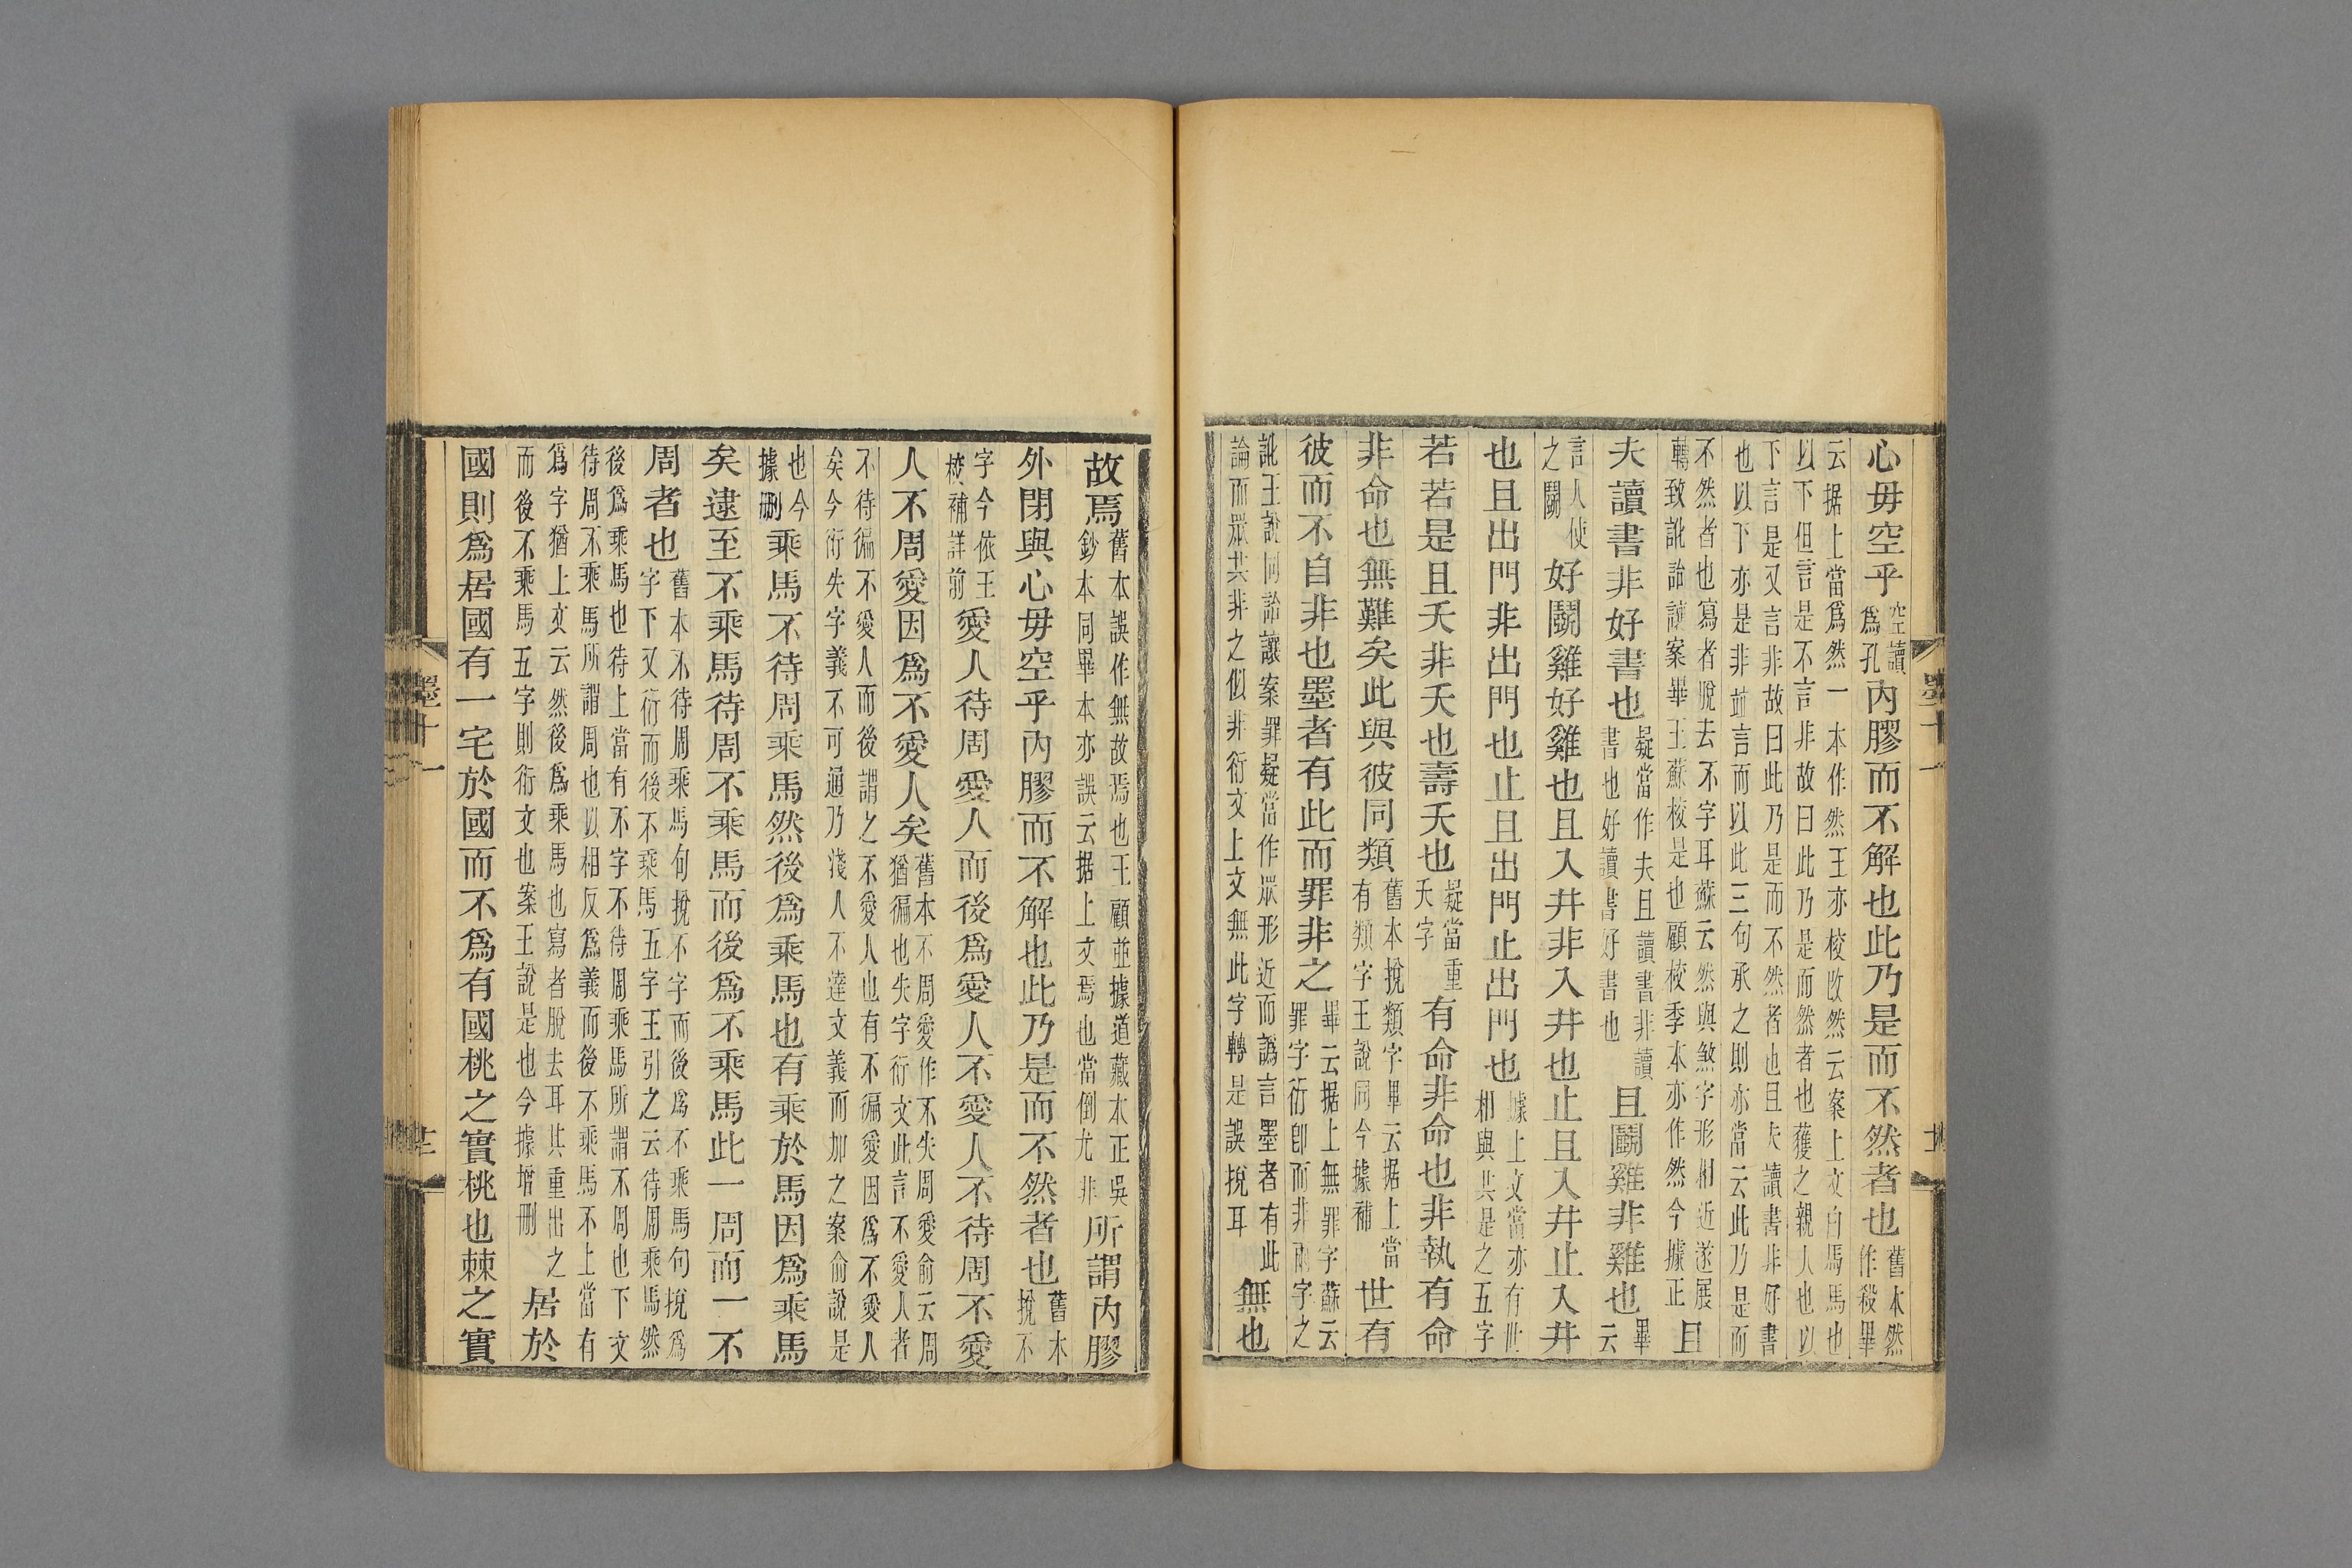 心毋空乎空讀爲孔內膠而不解也此乃是而不然者也舊本然作殺畢
云据上當爲然一本作然王亦校改然云案上文白馬馬也
以下但言是不言非故曰此乃是而然者也獲之親人也以
下言是又言非故曰此乃是而不然者也且夫讀書非好書
也以下亦是非竝言而以此三句承之則亦當云此乃是而
不然者也寫者脫去不字耳蘇云然與煞字形相近遂展
轉致訛詒讓案畢王蘇校是也顧校季本亦作然今據正且
夫讀書非好書也疑當作夫且讀書非讀書也好讀書好書也且鬬雞非雞也畢云
言人使之鬬好鬬雞好雞也且入井非入井也止且入井止入井
也且出門非出門也止且出門止出門也據上文當亦有世相與共是之五字
若若是且夭非夭也壽夭也疑當重夭字有命非命也非執有命
非命也無難矣此與彼同類舊本挩類字畢云据上當有類字王說同今據補世有
彼而不自非也墨者有此而罪非之畢云据上無罪字蘇云罪字衍卽而非兩字之
訛王說同詒讓案罪疑當作眾形近而譌言墨者有此
論而眾共非之似非衍文上文無此字轉是誤挩耳無也
墨十一
故焉舊本誤作無故焉也王顧並據道藏本正吳鈔本同畢本亦誤云据上文焉也當倒尤非所謂內膠
外閉與心毋空乎內膠而不解也此乃是而不然者也舊本挩不
字今依王校補詳前愛人待周愛人而後爲愛人不愛人不待周不愛
人不周愛因爲不愛人矣舊本不周愛作不失周愛俞云周猶徧也失字衍文此言不愛人者
不待徧不愛人而後謂之不愛人也有不徧愛因爲不愛人
矣今衍失字義不可通乃淺人不達文義而加之案俞說是
也今據刪乘馬不待周乘馬然後爲乘馬也有乘於馬因爲乘馬
矣逮至不乘馬待周不乘馬而後爲不乘馬此一周而一不
周者也舊本不待周乘馬句挩不字而後爲不乘馬句挩爲字下又衍而後不乘馬五字王引之云待周乘馬然
後爲乘馬也待上當有不字不待周乘馬所謂不周也下文
待周不乘馬所謂周也以相反爲義而後不乘馬不上當有
爲字猶上文云然後爲乘馬也寫者脫去耳其重出之
而後不乘馬五字則衍文也案王說是也今據增刪居於
國則爲居國有一宅於國而不爲有國桃之實桃也棘之實
墨十一